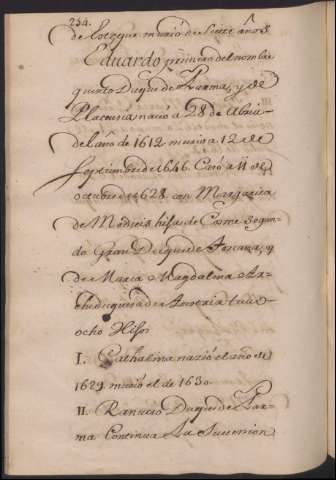 254.
de Este que murio de Siete años
Eduardo primero del nombre
quinto Duque de Parma, y de
Placencia nacio a 28 de Abril
del año de 1612 murio a 12 de
Septiembre de 1646. Casó a 11 de
octubre de 1628 con Margarita
de Medicis hija de Cosme Segun-
do Gran Duque de Toscana, y
de Maria Magdalena Ar-
chiduquesa de Austria tuvo
ocho Hijos
I. Cathalina nazió el año de
1629 murió el de 1630
II. Ranucio Duque de Par-
ma Continua La Succesion